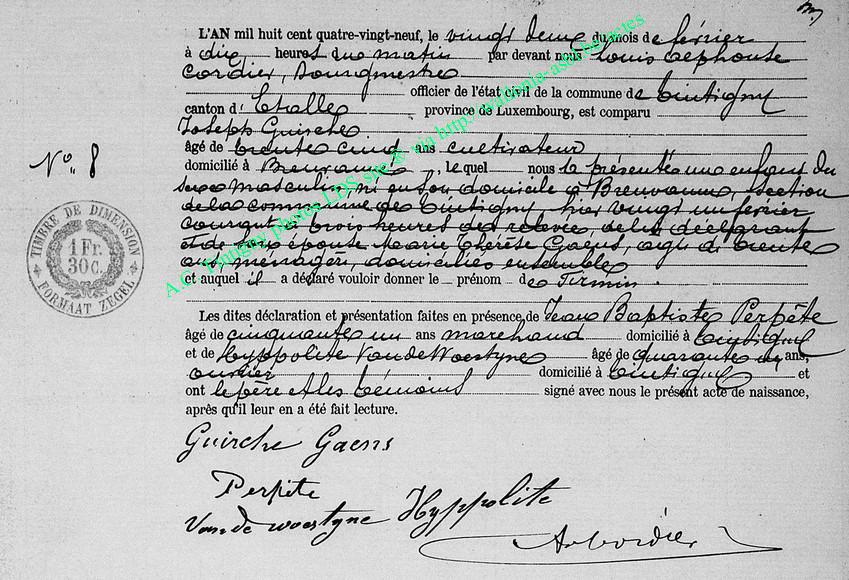 L'AN mil huit cent quatre-vingt-neuf, le vingt deux du mois de février
à dix heures du matin par devant nous Louis Alphonse
Cordier, Bourgmestre
officier de l'état civil de la commune de Tintigny
canton d'Etalle province de Luxembourg, est comparu
Joseph Guirche
âgé de trente cinq ans cultivateur
domicilié à Breuvanne, le quel nous a présenté un enfant du
sexe masculin, né en son domicile à Breuvanne, section
de la commune de Tintigny hier vingt un février
courant à trois heures de relevée, de lui déclarant
et de son épouse Marie Thérèse Gaens, agée de trente
ans ménagère, domiciliés ensemble
et auquel il a déclaré vouloir donner le prénom de Firmin.
Les dites déclaration et présentation faites en présence, de Jean Baptiste Perpète
âgé de cinquante un ans marchand domicilié à Tintigny
et de Hyppolite Vande Woestyne âgé de quarante un ans,
ouvrier domicilié à Tintigny et
ont le père et les témoins signé avec nous le présent acte de naissance,
après qu'il leur en a été fait lecture.
N° 8
TIMBRE DE DIMENSION
1 Fr.
30 C.
FORMAAT ZEGEL
Guirche Gaens
Perpète
Vande woestyne Hyppolite
A Cordier